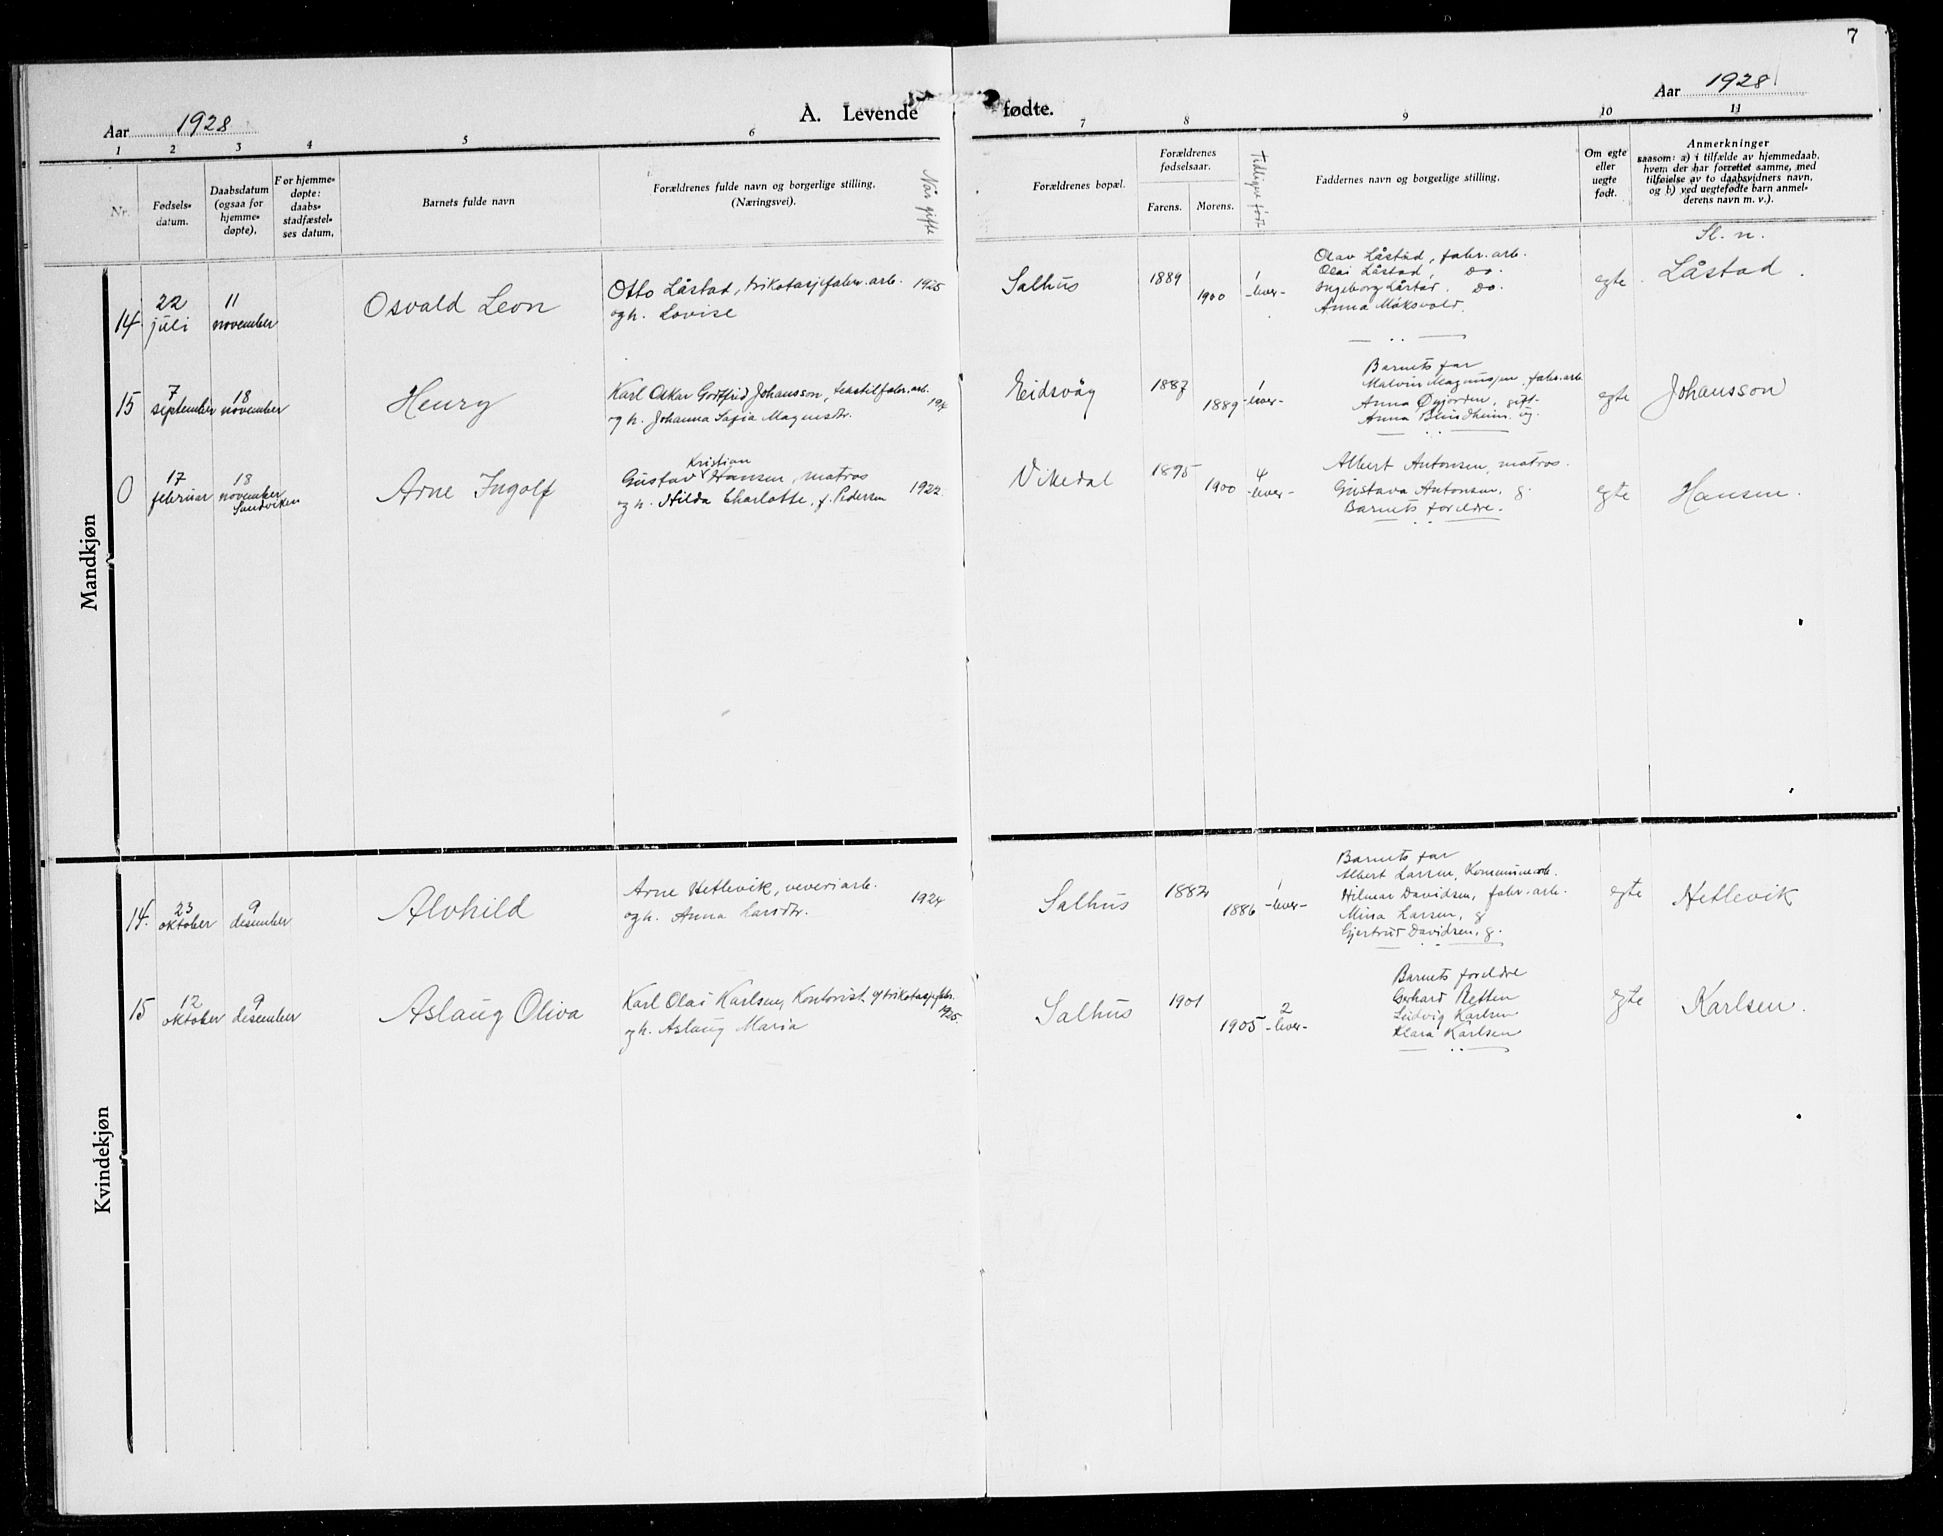 7
Aar 1928
A. Levende
fødte.
Aar 1928
1 2 3 4 5 6 7 8 9 10 11
Nr.
Fødsels-
datum.
Daabsdatum
(ogsaa for
hjemme-
døpte).
For hjemme-
døpte:
daabs-
stadfæstel-
ses datum.
Barnets fulde navn
Forældrenes fulde navn og borgerlige stilling.
(Næringsvei).
Når gifte
Forældrenes bopæl.
Forældrenes
fødselsaar.
Farens. Morens.
Tidligere født
Faddernes navn og borgerlige stilling.
Om egte
eller
uegte
født.
Anmerkninger
saasom: a) i tilfælde av hjemmedaab.
hvem der har forrettet samme, med
tilføielse av to daabsvidners navn,
og b) ved uegtefødte barn anmel-
derens navn m. v.).
Sl. n.
Mandkjøn
14
22
juli
11
november
Osvald Leon
Otto Låstad, trikotasjefabr. arb. 1925
og h. Lovise
Salhus
1889
1900
1
-lever-
Olav Låstad, fabr. arb.
Olai Låstad, do.
Ingeborg Låstad. do.
Anna Moksvold.
egte
Låstad.
15
7
september
18
november
Henry
Karl Oskar Gottfrid Johansson, tekstilfabr. arb.
og h. Johanna Sofia Magnusdr.
Eidsvåg
1887
1889
1
-lever-
Barnets far
Malvin Magnussen, fabr. arb.
Anna Øyjorden, gift
Anna Blindheim. ug.
egte
Johansson
0
17
februar
18
november
Sandviken
Arne Ingolf
Kristian
Gustav Hansen, matros
og h. Hilda Charlotte, f. Pedersen
1922
Vikedal
1895
1900
4
-lever-
Albert Antonsen, matros.
Gustava Antonsen, g.
Barnets foreldre.
egte
Hansen.
Kvindekjøn
14.
23
oktober
9
desember
Alvhild
Arne Hetlevik, veveriarb.
og h. Anna Larsdtr.
1924
Salhus
1882
1886
1
-lever-
Barnets far
Albert Larsen, Kommunearb.
Hilmar Davidsen, fabr. arb.
Mina Larsen, g
Gjertrud Davidsen, g.
egte
Hetlevik
15
12
oktober
9
desember
Aslaug Oliva
Karl Olai Karlsen, Kontorist v/ trikotasjefabr.
og h. Aslaug Maria
1925.
Salhus
1901
1905
2
-lever-
Barnets foreldre
Gerhard Retten
Ludvig Karlsen
Klara Karlsen
egte
Karlsen.